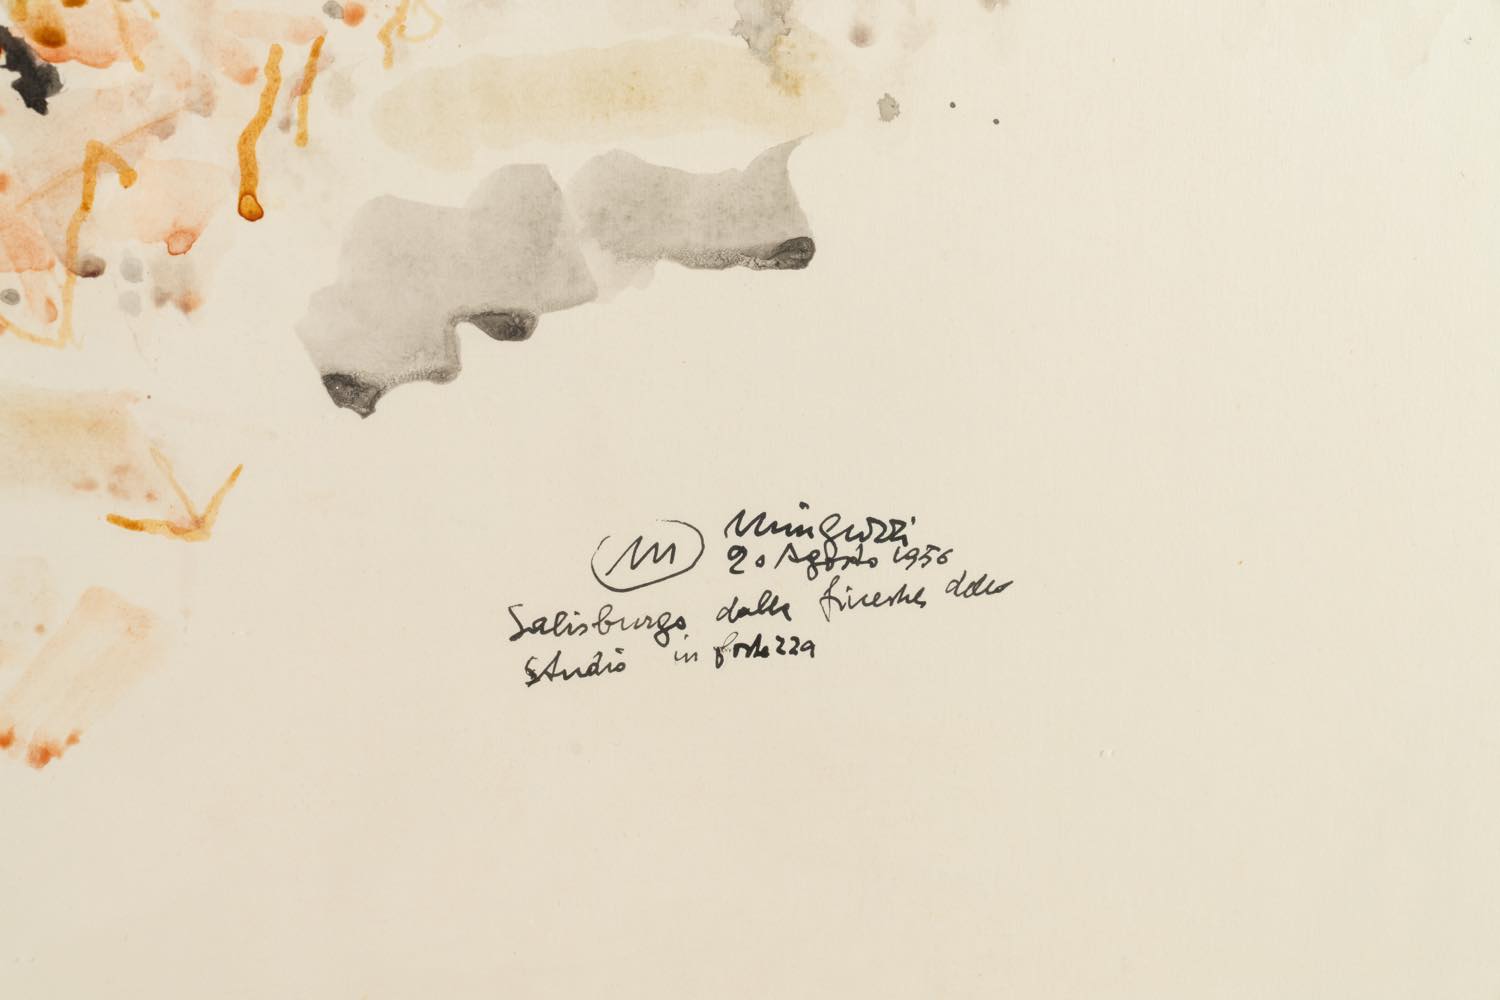 M Minguzzi
20 Agosto 1956
Salisburgo dalle finestre dello
Studio in fortezza